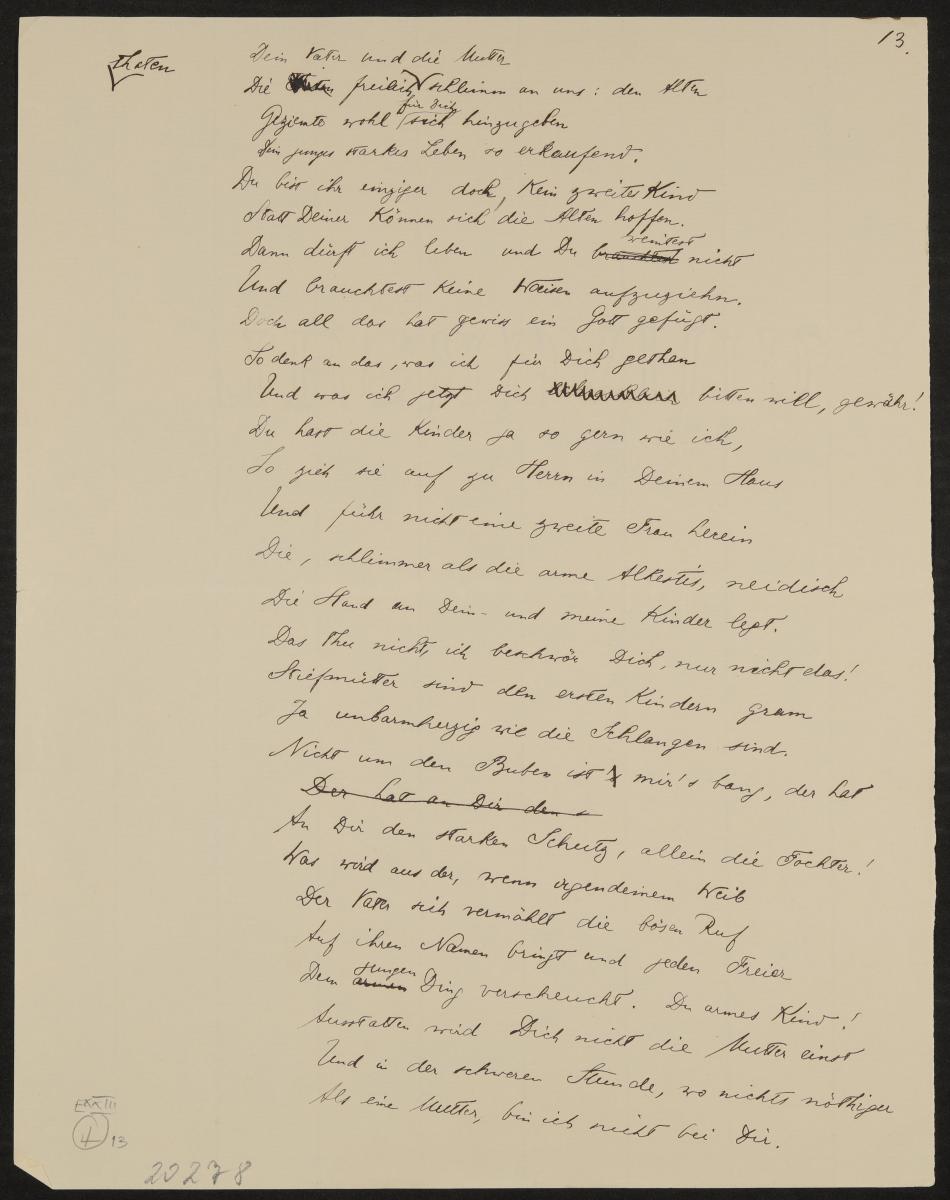 13.
thaten
Dein Vater und die Mutter
Die freilich schlimm an uns: den Alten
Geziemte wohl für Dich sich hinzugeben
Dein junges starkes Leben so erkaufend.
Du bist ihr einziger doch, kein zweites Kind
Statt Deiner können sich die Alten hoffen.
Dann dürft ich leben und Du brauchtest weintest nicht
Und brauchtest keine Waisen aufzuziehn.
Doch all das hat gewiss ein Gott gefügt.
So denk an das, was ich für Dich gethan
Und was ich jetzt Dich bitten will, gewähr!
Du hast die Kinder ja so gern wie ich,
So zieh sie auf zu Herrn in Deinem Haus
Und führ nicht eine zweite Frau herein
Die, schlimmer als die arme Alkestis, neidisch
Die Hand an Dein- und meine Kinder legt.
Das thu nicht, ich beschwör Dich, nur nicht das!
Stiefmütter sind den ersten Kindern gram
Ja unbarmherzig wie die Schlangen sind.
Nicht um den Buben ist mir's bang, der hat
Der hat an Dir den s
An Dir den starken Schutz, allein die Tochter!
Was wird aus der, wenn irgendeinem Weib
Der Vater sich vermählt die bösen Ruf
Auf ihren Namen bringt und jeden Freier
Dem armen jungen Ding verscheucht. Du armes Kind!
Ausstatten wird Dich nicht die Mutter einst
Und in der schweren Stunde, wo nichts nöthiger
Als eine Mutter, bin ich nicht bei Dir.
EXXIII
4 13
20278